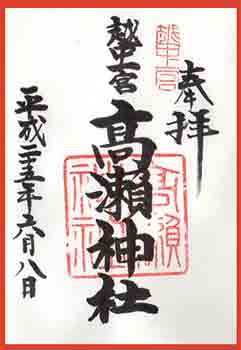 奉拝
越中一宮
越中一宮
高瀬神社
平成二五年六月八日